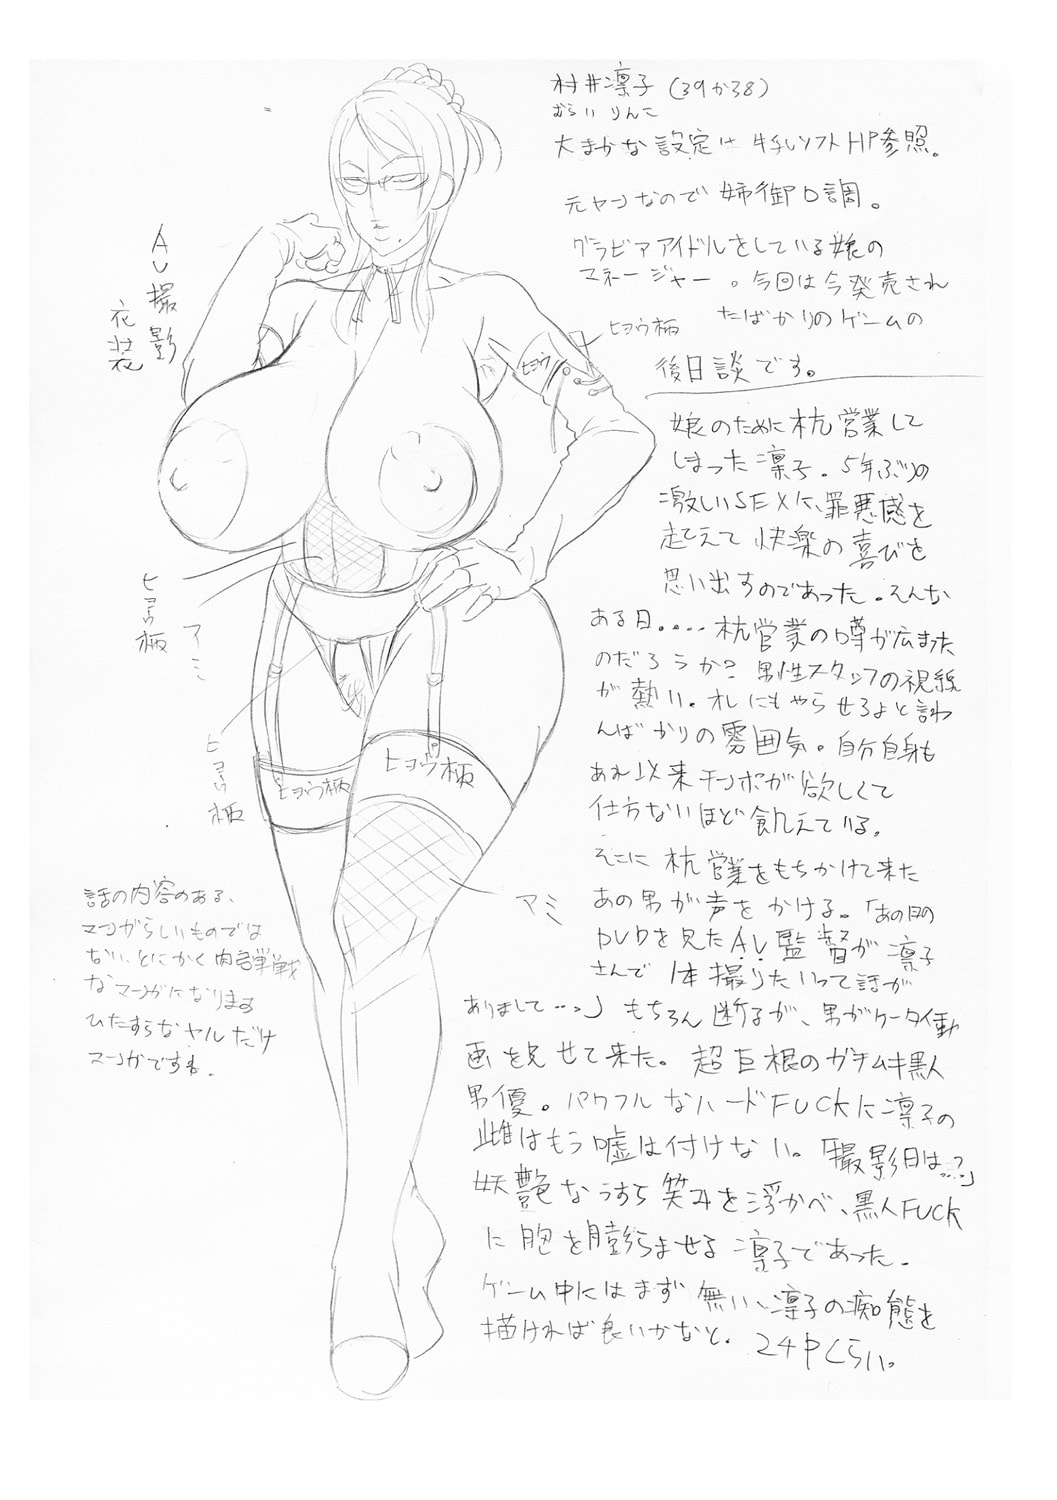 村井凛子(39か38)
むらい りんこ
大まかな設定は 牛乳ソフトHP参照。
元ヤンなので 姉御口調。
グラビアアイドルをしている娘の
マネージャー。今回は今発売され
たばかりのゲームの
後日談です。
娘のために枕営業して
しまった凛子。5年ぶりの
激しいSEXに、罪悪感を
超えて快楽の喜びを
思い出すのであった。そんな
ある日....枕営業の噂が広まった
のだろうか? 男性スタッフの視線
が熱い。オレにもやらせろよと言わ
んばかりの雰囲気。自分自身も
あれ以来チンポが欲しくて
仕方ないほど飢えている。
そこに枕営業をもちかけて来た
あの男が声をかける。「あの日の
DVDを見たAV監督が凛子
さんで1本撮りたいって話が
ありまして…」もちろん断るが、男がケータイ動
画を見せて来た。超巨根のガチムキ黒人
男優。パワフルなハードFUCKに凛子の
雌はもう嘘は付けない。「撮影日は...?」
妖艶なうすら笑みを浮かべ、黒人FUCK
に胸を膨らませる凛子であった。
ゲーム中にはまず無い、凛子の痴態を
描ければ良いかなと。24Pくらい。
AV撮影
衣装
ヒョウ柄
ヒョウ
ヒョウ柄
アミ
ヒョウ柄
ヒョウ柄
ヒョウ柄
アミ
話の内容のある、
マンガらしいものでは
ない、とにかく肉弾戦
なマンガになります
ひたすらなヤルだけ
マンガですね。